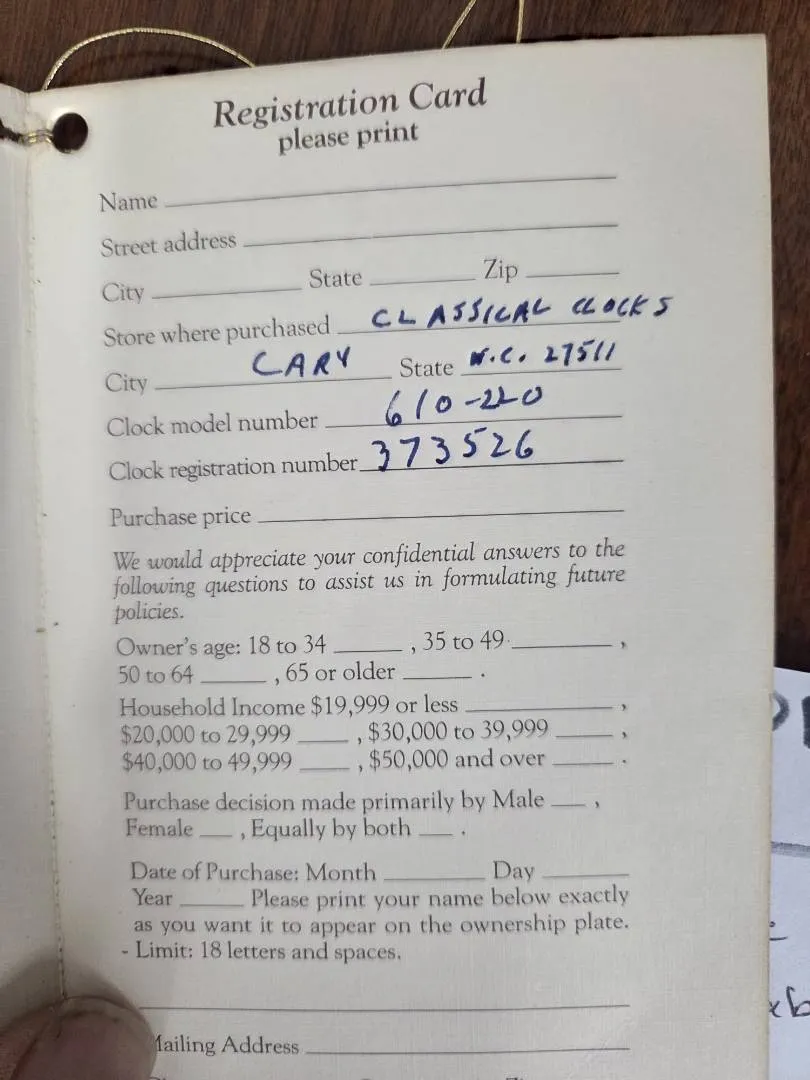 Registration Card
please print
Name
Street address
City State Zip
Store where purchased CLASSICAL CLOCKS
City CARY State N.C. 27511
Clock model number 610-220
Clock registration number 373526
Purchase price
We would appreciate your confidential answers to the
following questions to assist us in formulating future
policies.
Owner's age: 18 to 34 , 35 to 49 ,
50 to 64 , 65 or older .
Household Income $19,999 or less ,
$20,000 to 29,999 , $30,000 to 39,999 ,
$40,000 to 49,999 , $50,000 and over .
Purchase decision made primarily by Male ,
Female , Equally by both .
Date of Purchase: Month Day
Year Please print your name below exactly
as you want it to appear on the ownership plate.
- Limit: 18 letters and spaces.
Mailing Address